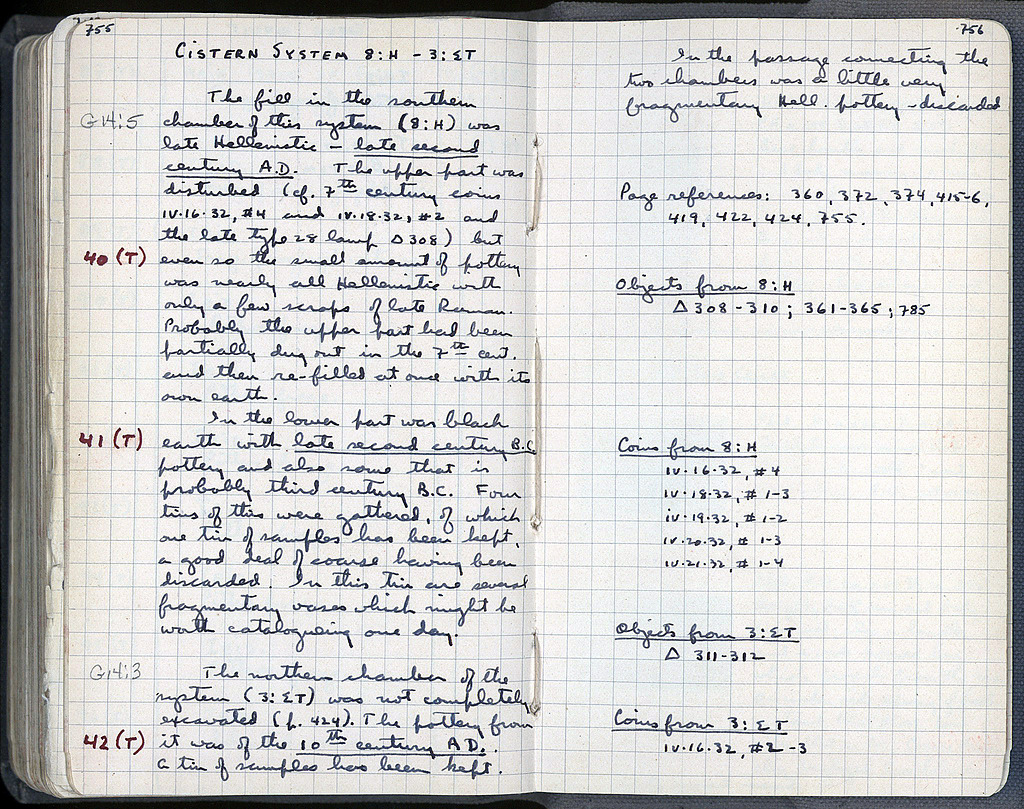 755
CISTERN SYSTEM 8:H - 3:ΣT
The fill in the southern
G14:5 chamber of this system (8:H) was
late Hellenistic – late second
century A.D. The upper part was
disturbed (cf. 7th century coins
IV.16.32, #4 and IV.18.32, #2 and
the late type 28 lamp Δ308) but
40 (T) even so the small amount of pottery
was nearly all Hellenistic with
only a few scraps of late Roman.
Probably the upper part had been
partially dug out in the 7th cent.
and then re-filled at once with its
own earth.
In the lower part was black
41 (T) earth with late second century B.C.
pottery and also some that is
probably third century B.C. Four
tins of this were gathered, of which
one tin of samples has been kept,
a good deal of coarse having been
discarded. In this tin are several
fragmentary vases which might be
worth catalogueing one day.
G14:3 The northern chamber of the
system (3:ΣT) was not completely
excavated (p. 424). The pottery from
42 (T) it was of the 10th century A.D..
a tin of samples has been kept.
756
In the passage connecting the
two chambers was a little very
fragmentary Hell. pottery – discarded
Page references: 360, 372, 374, 415-6,
419, 422, 424, 755.
Objects from 8:H
Δ 308-310; 361-365; 785
Coins from 8:H
IV.16.32, #4
IV.18.32, # 1-3
IV.19.32, # 1-2
IV.20.32, # 1-3
IV.21.32, # 1-4
Objects from 3:ΣT
Δ 311-312
Coins from 3:ΣT
IV.16.32, #2-3